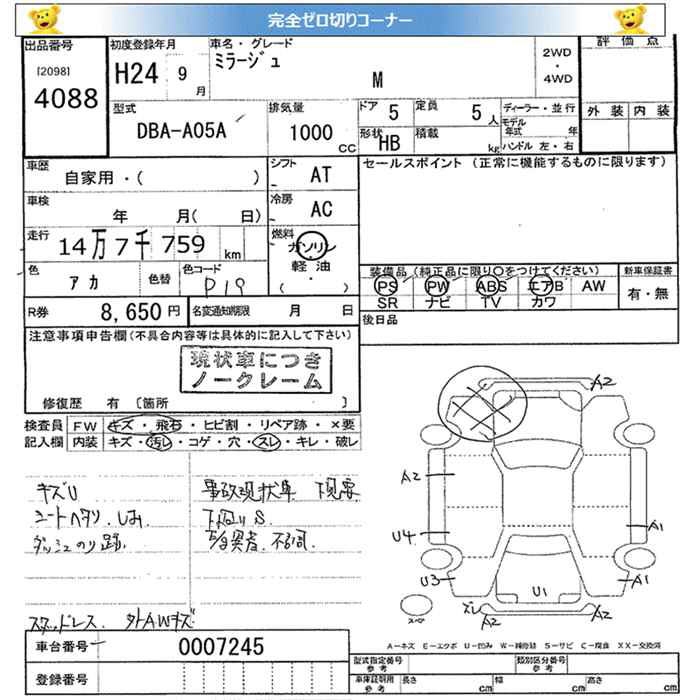 完全ゼロ切りコーナー
出品番号
[2098]
4088
初度登録年月
H24 9月
車名・グレード
ミラージュ
M
2WD
・
4WD
評価点
外装 内装
型式
DBA-A05A
排気量
1000 CC
ドア 5
定員 5人
形状 HB
積載 kg
ディーラー・並行
モデル年式 年
ハンドル 左・右
車歴
自家用・( )
シフト AT
セールスポイント (正常に機能するものに限ります)
車検
年 月( 日)
冷房 AC
走行
14万7千759 km
燃料
ガソリン
・
軽油
( ・ )
色
アカ
色替
色コード
P19
装備品 (純正品に限り○をつけてください)
PS PW ABS エアB AW
SR ナビ TV カワ
新車保証書
有・無
R券 8,650円
名変通知期限 月 日
後日品
注意事項申告欄(不具合内容等は具体的に記入して下さい)
現状車につき
ノークレーム
修復歴 有 [箇所 ]
検査員 FW キズ・飛石・ヒビ割・リペア跡・×要
記入欄 内装 キズ・汚レ・コゲ・穴・スレ・キレ・破レ
キズU
シートヘタリ、しみ
ダッシュのり跡
事故現状車 下見要
下回りS
スタッドレス 外AWキズ
A2
A2
U4
U3
A1
A1
U1
ズレ
A2
A2
スペ
A-キズ E-エクボ U-凹み W-補修跡 S-サビ C-腐食 XX-交換済
車台番号 0007245
登録番号
型式指定番号
参考
類別区分番号
参考
車庫証明用
参考
長さ cm
幅 cm
高さ cm